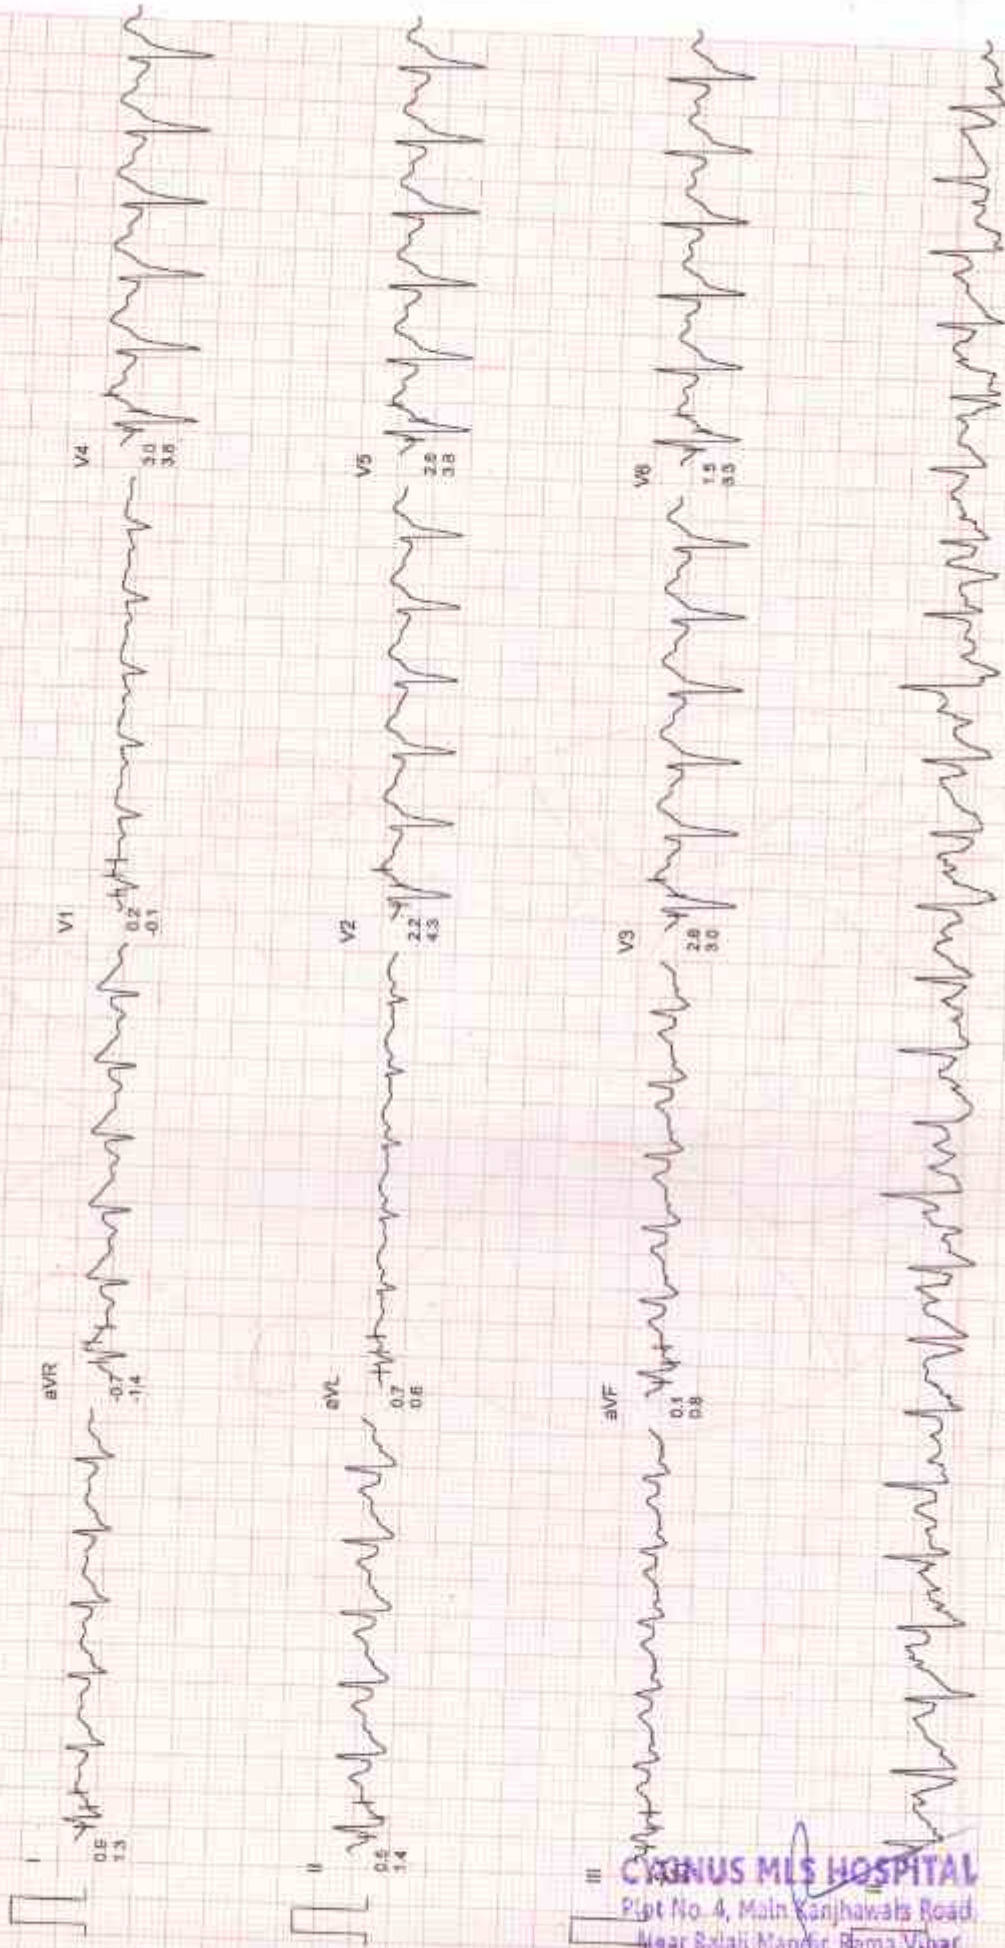 I
0.9
1.3
aVR
-0.7
-1.4
V1
0.2
-0.1
V4
3.0
3.8
II
0.5
1.4
aVL
0.7
0.6
V2
2.2
4.3
V5
2.6
3.8
III
aVF
0.1
0.8
V3
2.8
3.0
V6
1.5
3.3
II
CYGNUS MLS HOSPITAL
Plot No. 4, Main Kanjhawala Road,
Near Balaji Mandir, Rama Vihar